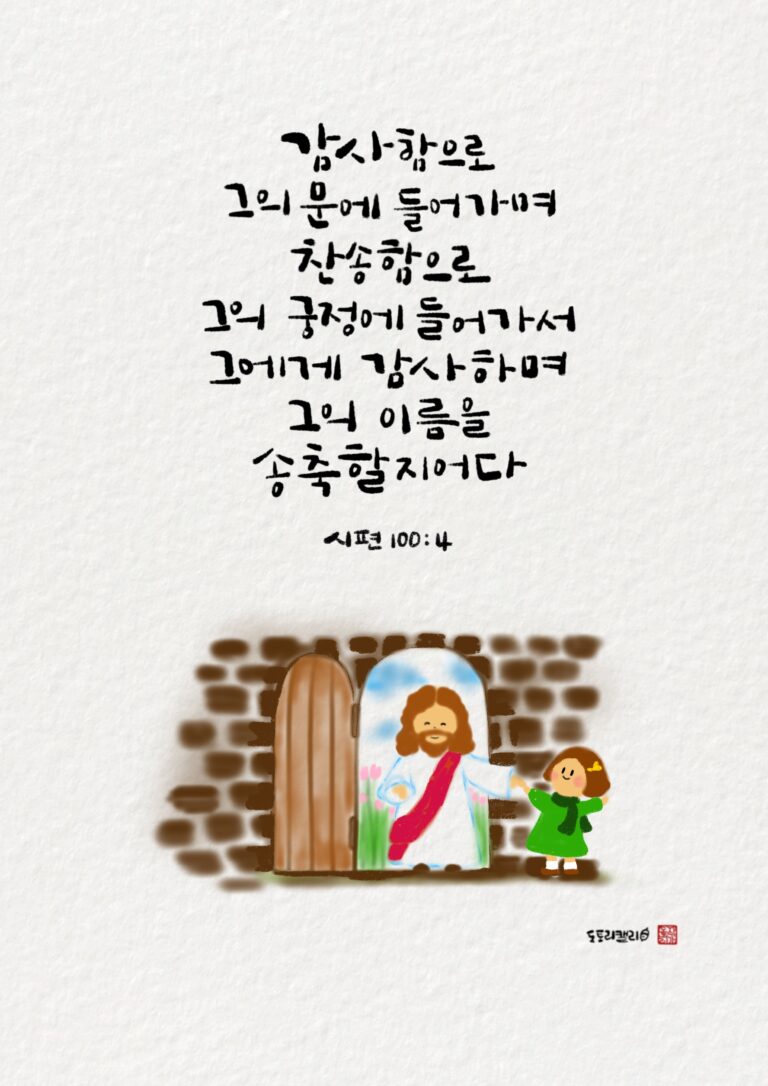 감사함으로
그의 문에 들어가며
찬송함으로
그의 궁정에 들어가서
그에게 감사하며
그의 이름을
송축할지어다
시편 100:4
도토리캘리